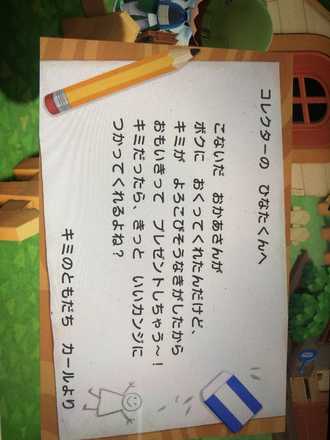 コレクターの　ひなたくんへ
こないだ　おかあさんが
ボクに　おくってくれたんだけど、
キミが　よろこびそうなきがしたから
おもいきって　プレゼントしちゃう～！
キミだったら、きっと　いいカンジに
つかってくれるよね？
キミのともだち　カールより